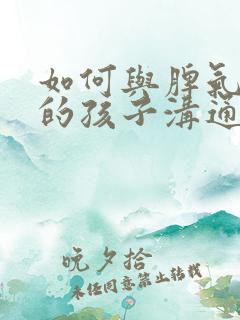 如何與脾氣
的孩子溝通
晚夕拾
未經同意禁止轉載